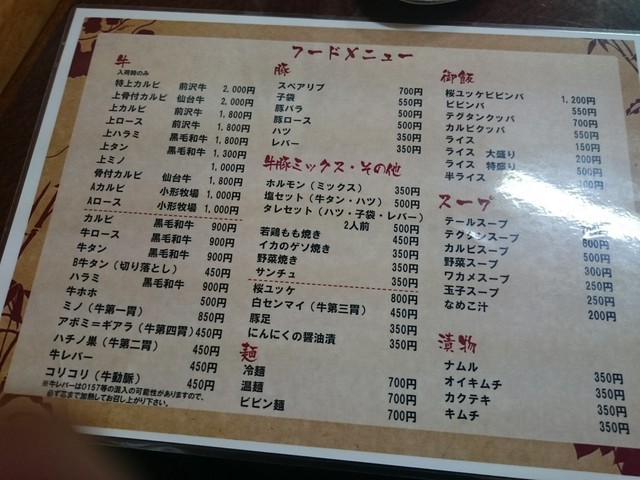 フードメニュー
牛
入荷時のみ
特上カルビ 前沢牛 2,000円
上骨付カルビ 仙台牛 2,000円
上カルビ 前沢牛 1,800円
上ロース 前沢牛 1,800円
上ハラミ 黒毛和牛 1,800円
上タン 黒毛和牛 1,300円
上ミノ 1,000円
骨付カルビ 仙台牛 1,800円
Aカルビ 小形牧場 1,000円
Aロース 小形牧場 1,000円
カルビ 黒毛和牛 900円
牛ロース 黒毛和牛 900円
牛タン 黒毛和牛 900円
B牛タン(切り落とし) 450円
ハラミ 黒毛和牛 900円
牛ホホ 500円
ミノ(牛第一胃) 850円
アボミ=ギアラ(牛第四胃) 450円
ハチノ巣(牛第二胃) 450円
牛レバー 450円
コリコリ(牛動脈) 450円
※牛レバーはO157等の混入の可能性がありますので、
必ず芯まで加熱してお召し上がり下さい。
豚
スペアリブ 700円
子袋 550円
豚バラ 500円
豚ロース 500円
ハツ 350円
レバー 350円
牛豚ミックス・その他
ホルモン(ミックス) 350円
塩セット(牛タン・ハツ) 500円
タレセット(ハツ・子袋・レバー)
2人前 500円
若鶏もも焼き 450円
イカのゲソ焼き 350円
野菜焼き 350円
サンチュ 350円
桜ユッケ 800円
白センマイ(牛第三胃) 450円
豚足 350円
にんにくの醤油漬 350円
麺
冷麺 700円
温麺 700円
ビビン麺 700円
御飯
桜ユッケビビンバ 1,200円
ビビンバ 550円
テグタンクッパ 700円
カルビクッパ 550円
ライス 150円
ライス 大盛り 200円
ライス 特盛り
半ライス
スープ
テールスープ
テクタンスープ 600円
カルビスープ 500円
野菜スープ 300円
ワカメスープ 300円
玉子スープ 250円
なめこ汁 200円
漬物
ナムル 350円
オイキムチ 350円
カクテキ 350円
キムチ 350円